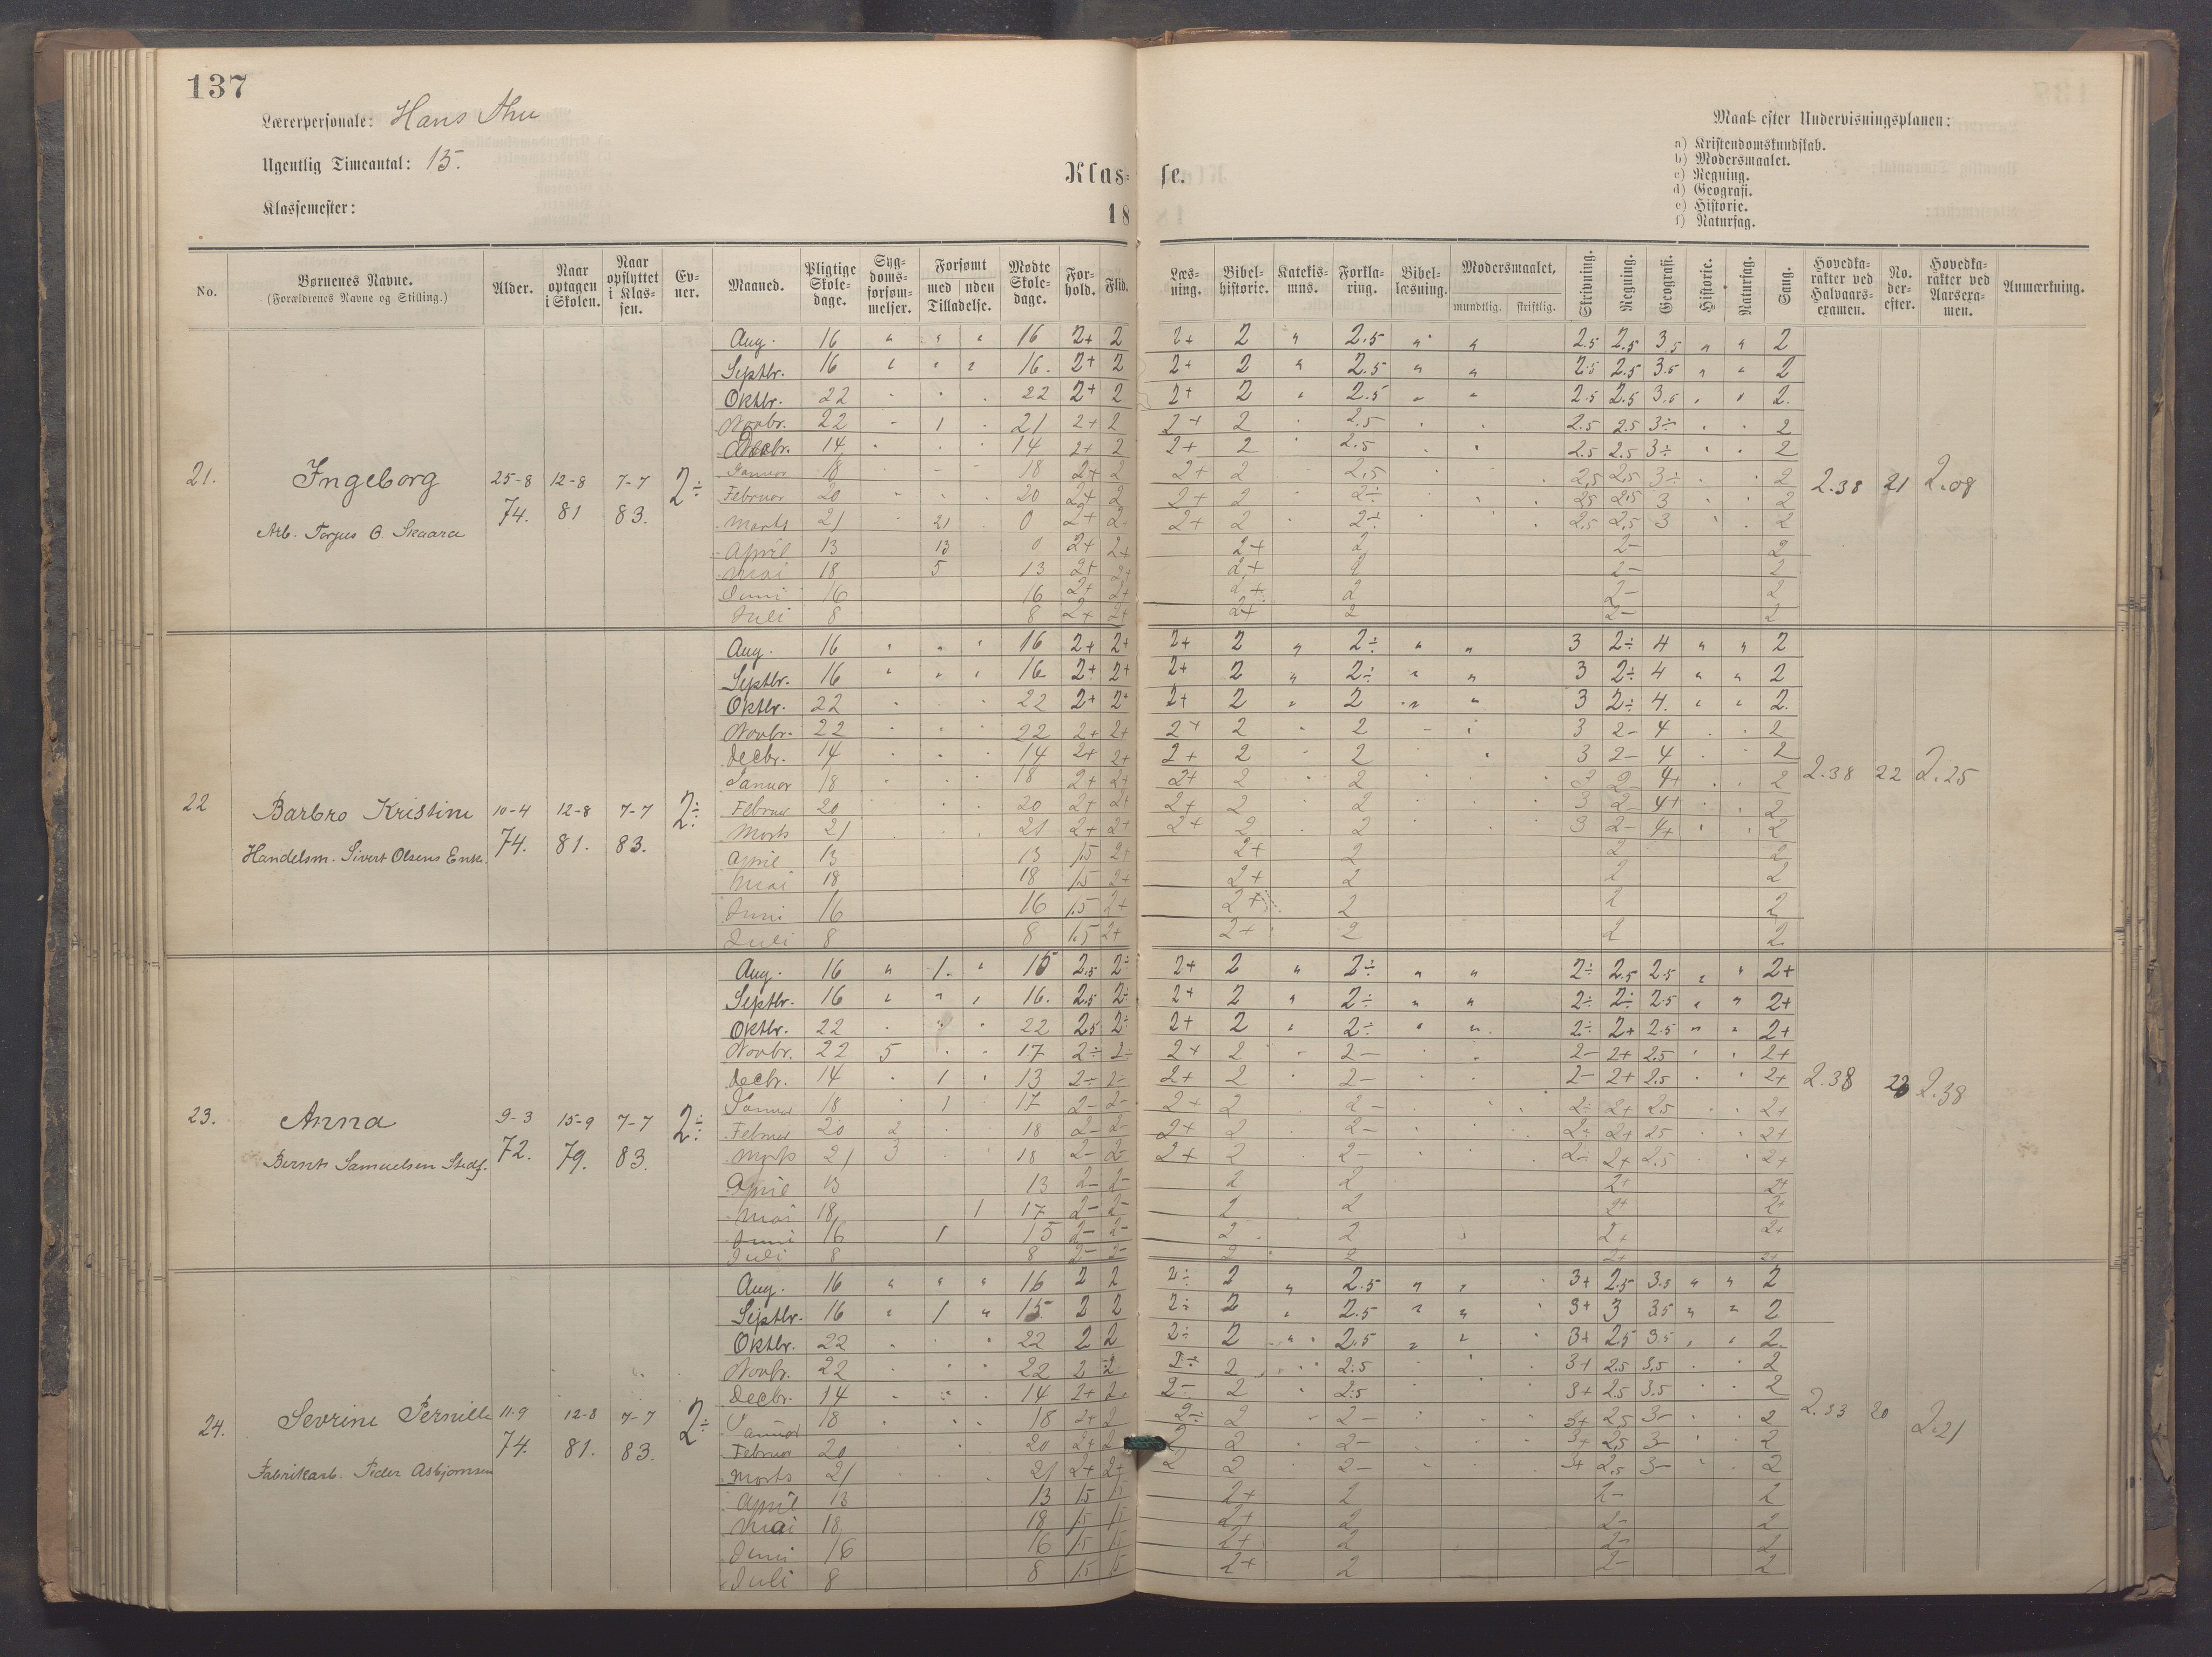 137
Lærerpersonale: Hans Thu
Ugentlig Timeantal: 15.
Klassemester:
Klas- se.
18
Maal efter Undervisningsplanen:
a) Kristendomskundskab.
b) Modersmaalet.
c) Regning.
d) Geografi.
e) Historie.
f) Naturfag.
No. Børnenes Navne. (Forældrenes Navne og Stilling.) Alder. Naar optagen i Skolen. Naar opflyttet i Klassen. Evner. Maaned. Pligtige Skoledage. Sygdomsforsømmelser. Forsømt med uden Tilladelse. Mødte Skoledage. Forhold. Flid. Læsning. Bibelhistorie. Katekismus. Forklaring. Bibellæsning. Modersmaalet, mundtlig. skriftlig. Skrivning. Regning. Geografi. Historie. Naturfag. Sang. Hovedkarakter ved Halvaarsexamen. No. derefter. Hovedkarakter ved Aarsexamen. Anmærkning.
21. Ingeborg 25-8 74. 12-8 81 7-7 83. 2÷ 2.38 21 2.08
Arb. Torjus O. Skaara
Aug. 16 " " " 16 2+ 2 2+ 2 " 2.5 " " 2.5 2.5 3.5 " " 2
Septbr. 16 " " " 16. 2+ 2 2+ 2 " 2.5 " " 2.5 2.5 3.5 " " 2
Oktbr. 22 22 2+ 2 2+ 2 " 2.5 " " 2.5 2.5 3.5 2.
Novbr. 22 1 21 2+ 2 2+ 2 2.5 2.5 2.5 3÷ 2
Decbr. 14 14 2+ 2 2+ 2 2.5 2.5 2.5 3÷ 2
Januar 18 18 2+ 2 2+ 2 2.5 2.5 2.5 3÷ 2
Februar 20 20 2+ 2 2+ 2 2÷ 2.5 2.5 3 2
Marts 21 21 0 2+ 2 2+ 2 2÷ 2.5 2.5 3 2
April 13 13 0 2+ 2+ 2+ 2 2- 2
Mai 18 5 13 2+ 2+ 2+ 2 2- 2
Juni 16 16 2+ 2+ 2+ 2 2- 2
Juli 8 8 2+ 2+ 2+ 2 2- 2
22 Barbro Kristine 10-4 74. 12-8 81. 7-7 83. 2÷ 2.38 22 2.25
Handelsm. Sivert Olsens Enke.
Aug. 16 " " " 16 2+ 2+ 2+ 2 " 2÷ " " 3 2÷ 4 " " 2
Septbr. 16 " " " 16 2+ 2+ 2+ 2 " 2÷ " " 3 2÷ 4 " " 2
Oktbr. 22 22 2+ 2+ 2+ 2 " 2 " " 3 2÷ 4. " " 2.
Novbr. 22 22 2+ 2+ 2+ 2 2 3 2- 4 2
Decbr. 14 14 2+ 2+ 2+ 2 2 3 2- 4 2
Januar 18 18 2+ 2+ 2+ 2 2 3 2- 4+ 2
Februar 20 20 2+ 2+ 2+ 2 2 3 2- 4+ 2
Marts 21 21 2+ 2+ 2+ 2 2 3 2- 4+ 2
April 13 13 1.5 2+ 2+ 2 2 2
Mai 18 18 1.5 2+ 2+ 2 2 2
Juni 16 16 1.5 2+ 2+ 2 2 2
Juli 8 8 1.5 2+ 2+ 2 2 2.
23. Anna 9-3 72. 15-9 79. 7-7 83. 2÷ 2.38 23 2.38
Bernth Samuelsen Stedf.
Aug. 16 " 1. " 15 2.5 2÷ 2+ 2 " 2÷ " " 2÷ 2.5 2.5 " " 2+
Septbr. 16 " " " 16. 2.5 2÷ 2+ 2 " 2÷ " " 2÷ 2÷ 2.5 " " 2+
Oktbr. 22 22 2.5 2÷ 2+ 2 " 2÷ " " 2÷ 2+ 2.5 " " 2+
Novbr. 22 5 17 2÷ 2÷ 2+ 2 2- 2- 2+ 2.5 2+
Decbr. 14 1 13 2÷ 2÷ 2+ 2 2- 2- 2+ 2.5 2+
Januar 18 1 17 2- 2- 2+ 2 2- 2÷ 2+ 2.5 2+
Februar 20 2 18 2- 2- 2+ 2 2- 2÷ 2+ 2.5 2+
Marts 21 3 18 2- 2- 2+ 2 2- 2÷ 2+ 2.5 2+
April 13 13 2- 2- 2 2 2+ 2+
Mai 18 1 17 2- 2- 2 2 2+ 2+
Juni 16 1 15 2- 2- 2 2 2+ 2+
Juli 8 8 2- 2- 2 2 2+ 2+
24. Sevrine Pernille 11-9 74. 12-8 81. 7-7 83. 2÷ 2.33 20 2.21
Fabrikarb. Peder Asbjørnsen
Aug. 16 " " " 16 2 2 2÷ 2 " 2.5 " " 3+ 2.5 3.5 " " 2
Septbr. 16 " 1 " 15 2 2 2÷ 2 " 2.5 " " 3+ 3 3.5 " " 2
Oktbr. 22 22 2 2 2÷ 2 " 2.5 " " 3+ 2.5 3.5 2.
Novbr. 22 22 2 2 2÷ 2 2.5 3+ 2.5 3.5 2
Decbr. 14 14 2+ 2. 2- 2 2.5 3+ 2.5 3.5 2
Januar 18 18 2+ 2 2÷ 2 2- 3+ 2.5 3- 2
Februar 20 20 2+ 2 2 2 2- 3+ 2.5 3- 2
Marts 21 21 2+ 2+ 2 2 2- 3+ 2.5 3- 2
April 13 13 1.5 1.5 2+ 2 2- 2
Mai 18 18 1.5 1.5 2+ 2 2- 2
Juni 16 16 1.5 1.5 2+ 2 2- 2
Juli 8 8 1.5 1.5 2+ 2 2- 2